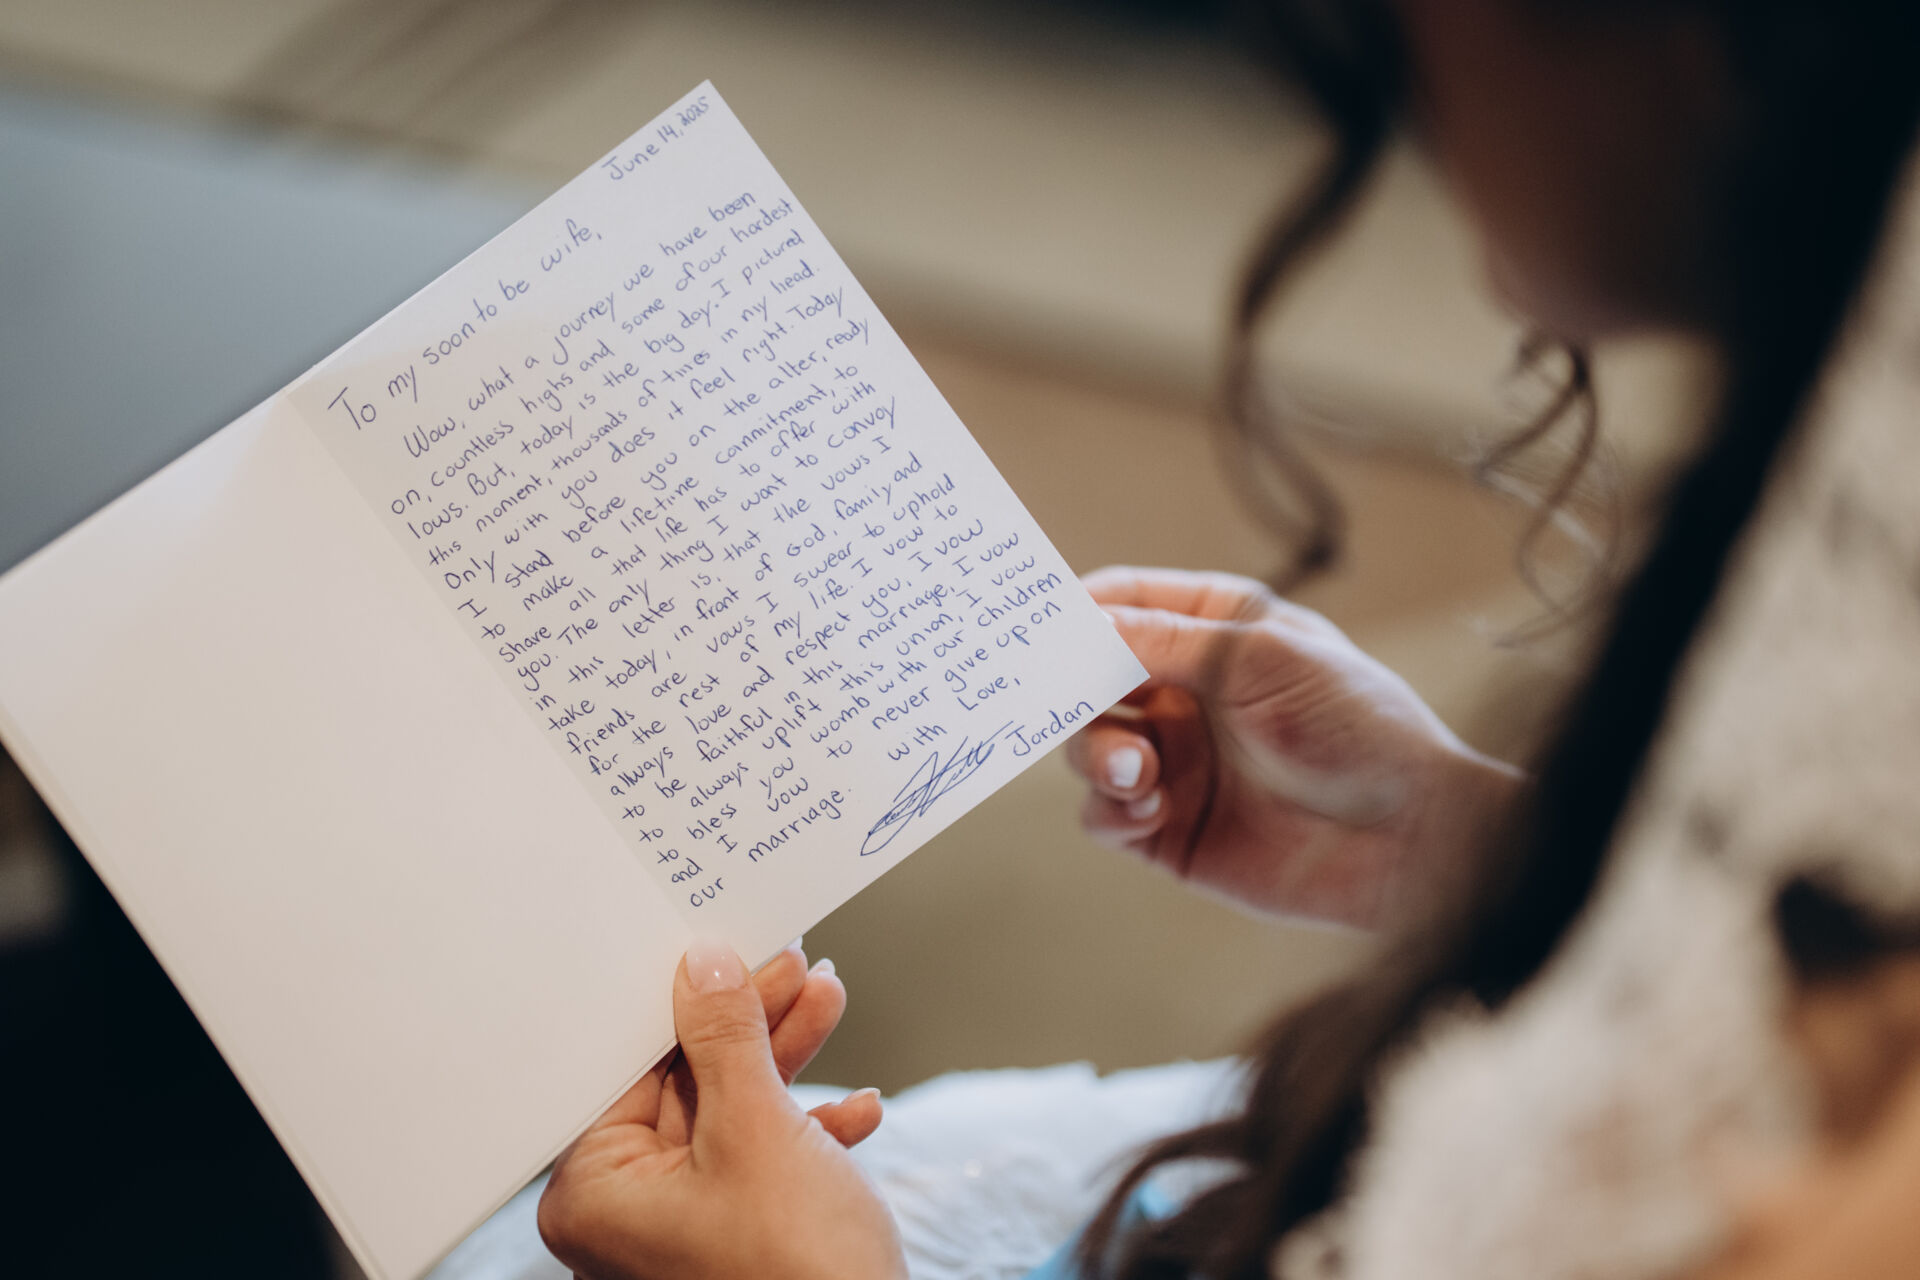 June 14, 2025
To my soon to be wife,
Wow, what a journey we have been
on, countless highs and some of our hardest
lows. But, today is the big day. I pictured
this moment, thousands of times in my head.
Only with you does it feel right. Today
I stand before you on the alter, ready
to make a lifetime commitment, to
share all that life has to offer with
you. The only thing I want to convoy
in this letter is, that the vows I
take today, in front of God, family and
friends are vows I swear to uphold
for the rest of my life. I vow to
allways love and respect you, I vow
to be faithful in this marriage, I vow
to always uplift this union, I vow
to bless you womb with our children
and I vow to never give up on
our marriage.
with Love,
Jordan